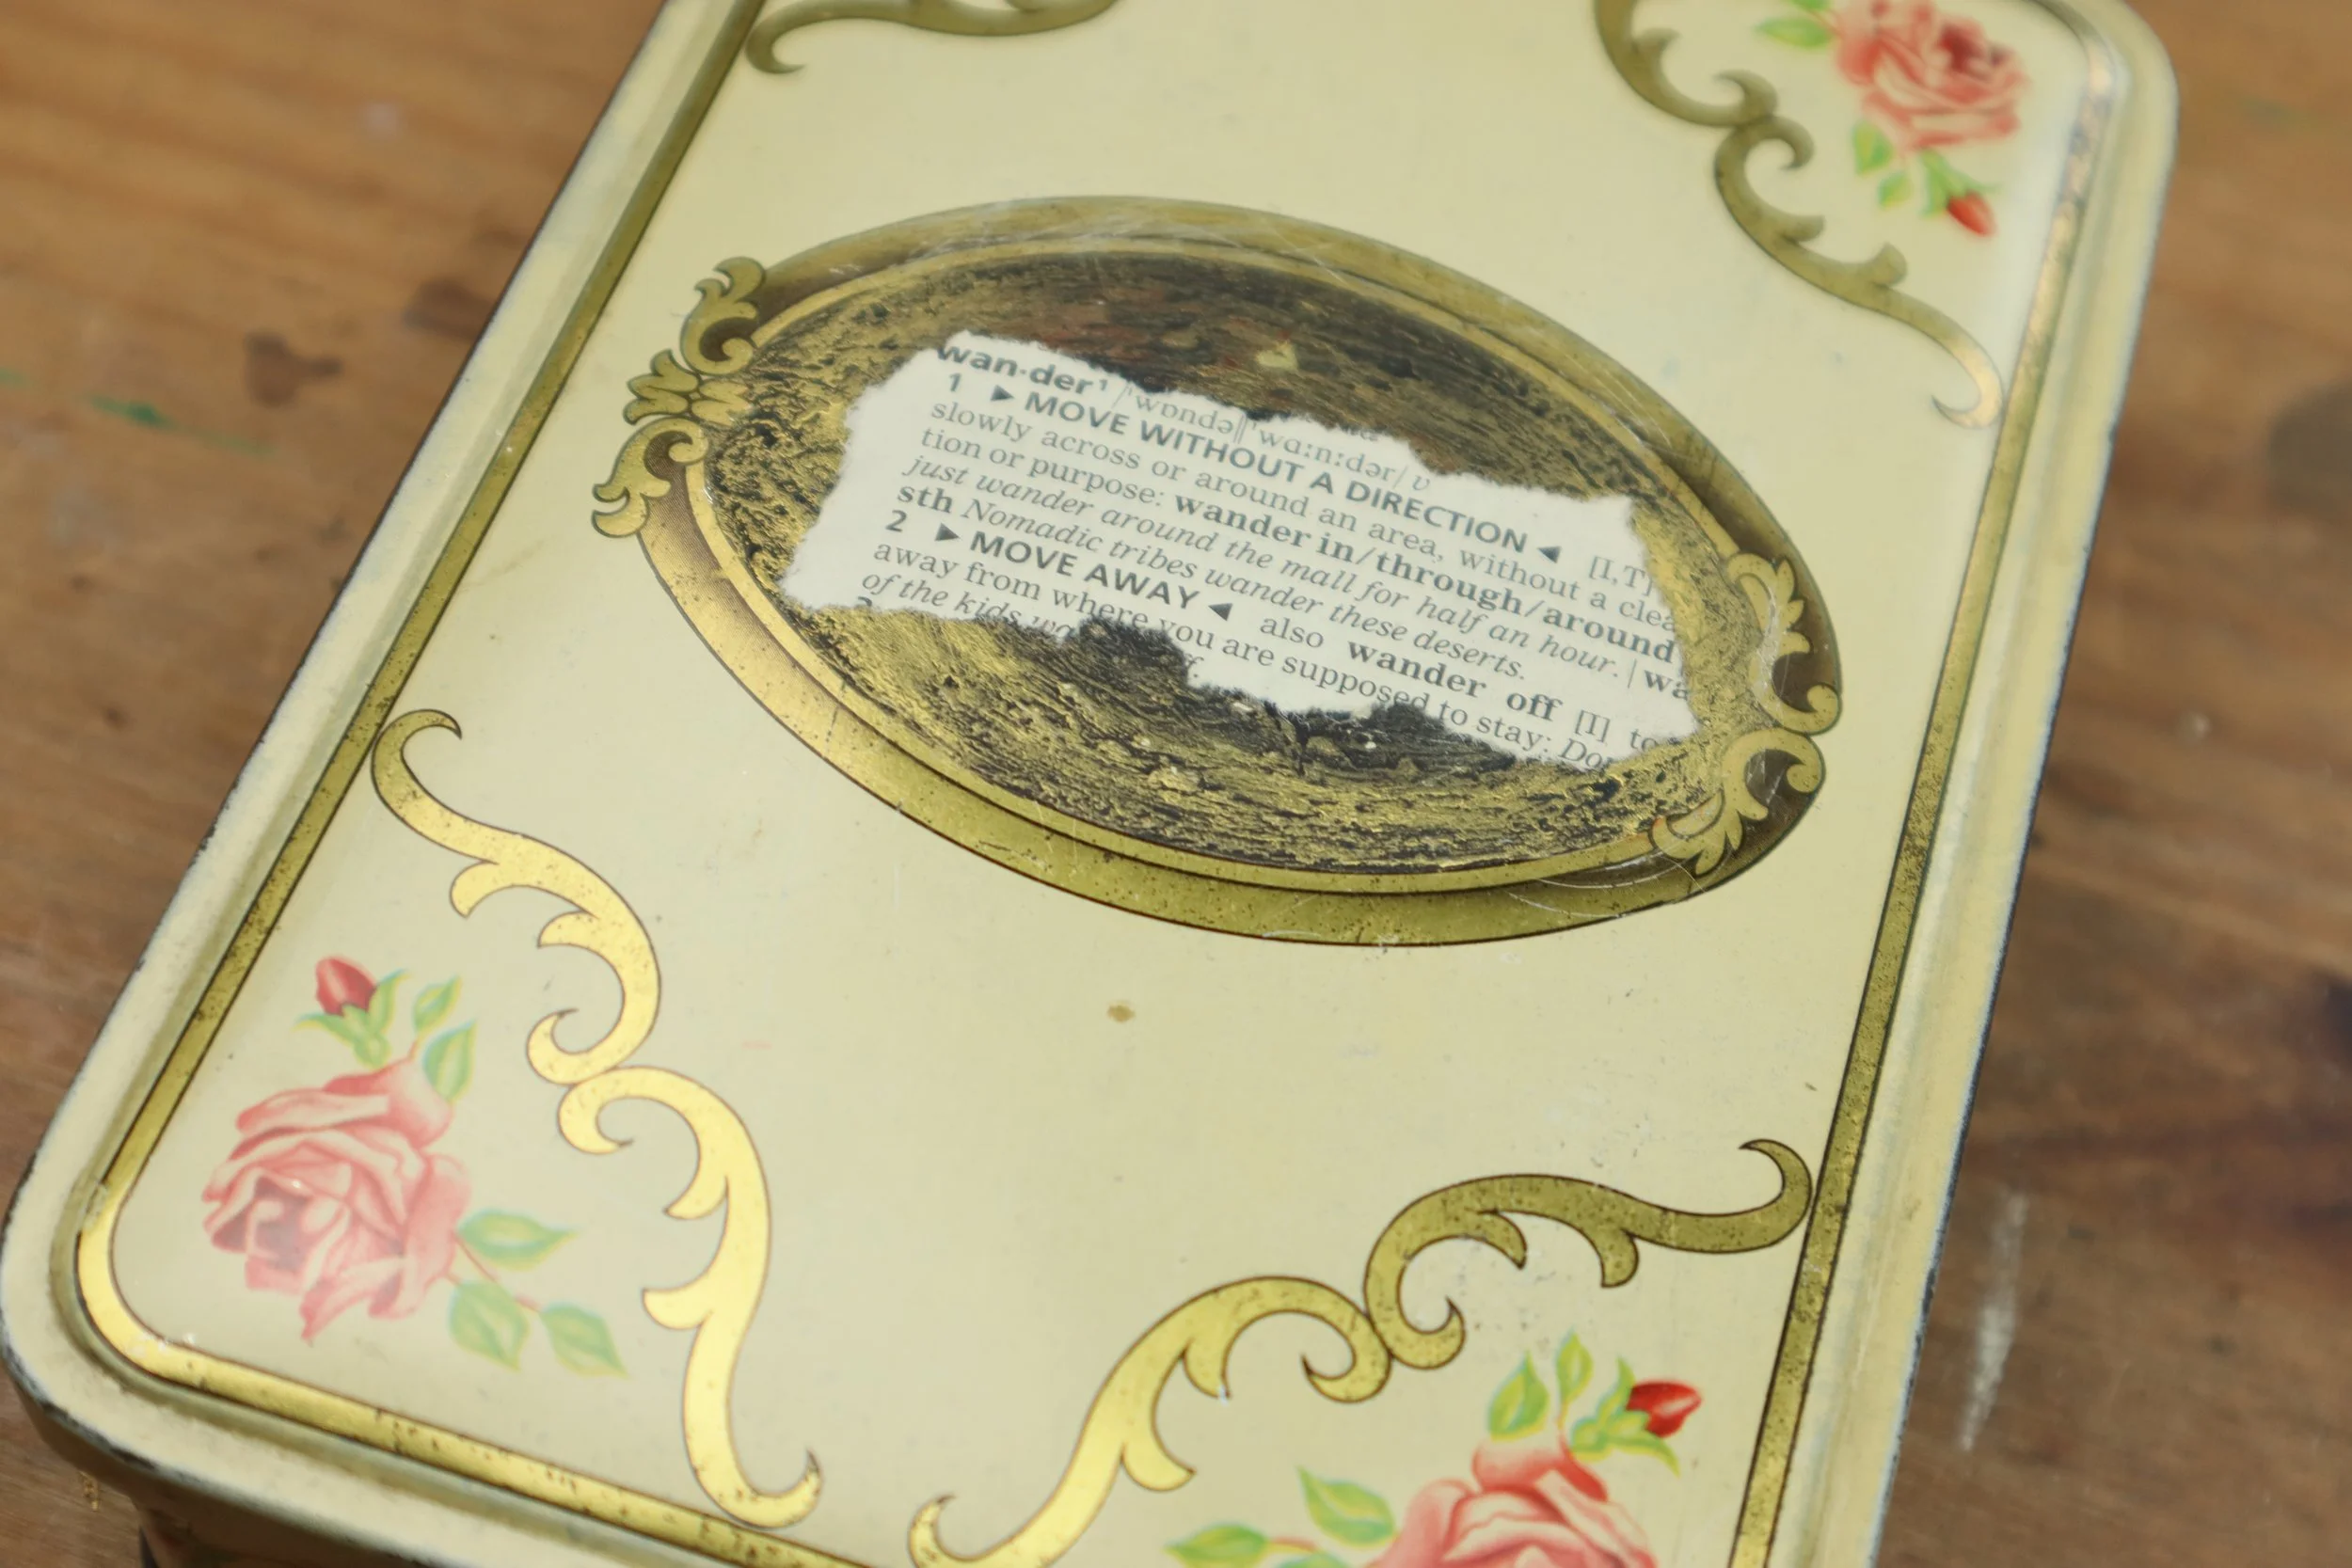 wan·der¹ /ˈwɒndə‖ˈwɑːnːdər/ v
1 ▶ MOVE WITHOUT A DIRECTION ◀ [I,T]
slowly across or around an area, without a clea
tion or purpose: wander in/through/around
just wander around the mall for half an hour. | wa
sth Nomadic tribes wander these deserts.
2 ▶ MOVE AWAY ◀ also wander off [I] to
away from where you are supposed to stay: Don
of the kids wa